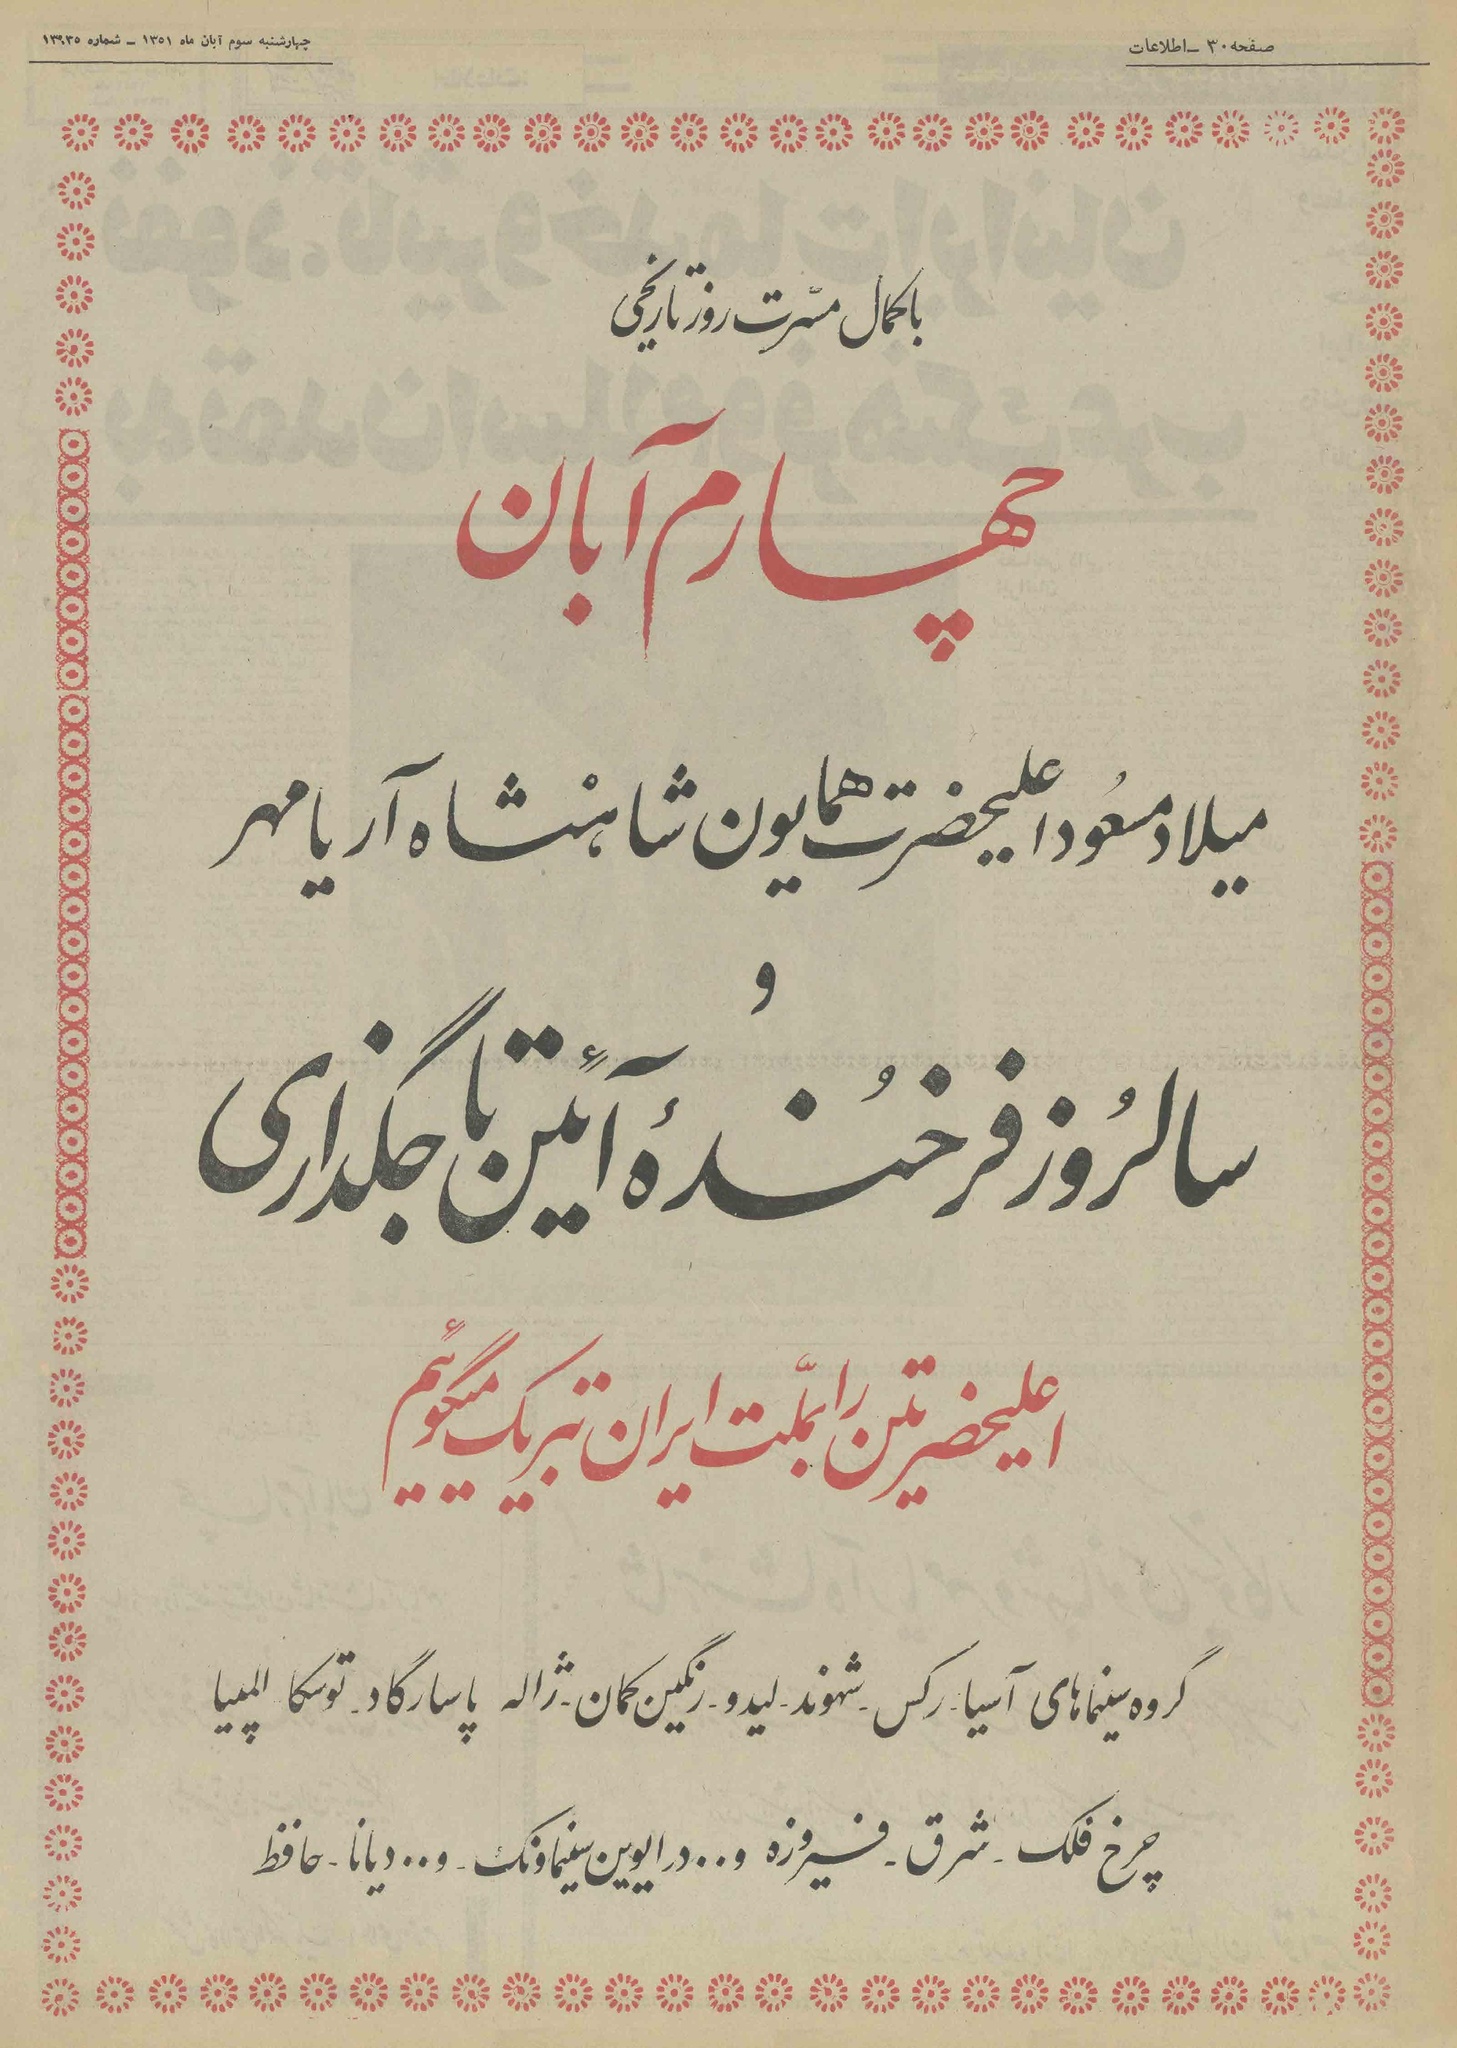 صفحه ۳۰ ـ اطلاعات
چهارشنبه سوم آبان ماه ۱۳۵۱ ـ شماره ۱۳۹۳۵
با کمال مسّرت روز تاریخی
چهارم آبان
میلاد مسعُود اعلیحضرت همایون شاهنشاه آریامهر
و
سالرُوز فرخُندهٔ آئین تاجگذاری
اعلیحضرتین را بملّت ایران تبریک میگوئیم
گروه سینماهای آسیا ـ رکس ـ شهوند ـ لیدو ـ رنگین کمان ـ ژاله پاسارگاد ـ توسکا المپیا
چرخ فلک ـ شرق ـ فیروزه و .. درایوین سینما ونک ـ و .. دیانا ـ حافظ